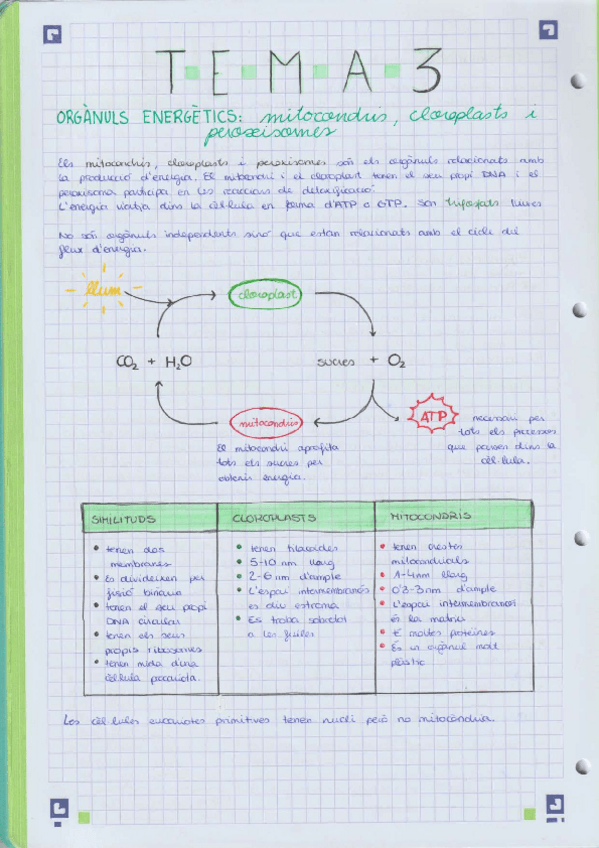 TEMA 3
ORGÀNULS ENERGÈTICS: mitocondris, cloroplasts i
peroxisomes
Els mitocondris, cloroplasts i peroxisomes són els orgànuls relacionats amb
la producció d'energia. El mitocondri i el cloroplast tenen el seu propi DNA i el
peroxisoma participa en les reaccions de detoxificació.
L'energia viatja dins la cèl·lula en forma d'ATP o GTP. Són trifosfats lliures
No són orgànuls independents sinó que estan relacionats amb el cicle del
flux d'energia.
llum
cloroplast
CO2 + H2O
sucres + O2
mitocondris
ATP
necessari per
tots els processos
que passen dins la
cèl·lula.
El mitocondri aprofita
tots els sucres per
obtenir energia.
SIMILITUDS
• tenen dos
membranes
• Es divideixen per
fisió binària
• tenen el seu propi
DNA circular
• tenen els seus
propis ribosomes
• tenen mida d'una
cèl·lula procariota.
CLOROPLASTS
• tenen tilacoides
• 5-10 nm llarg
• 2-6 nm d'ample
• L'espai intermembranós
es diu estroma
• Es troba sobretot
a les fulles
MITOCONDRIS
• tenen crestes
mitocondrials
• 1-4nm llarg
• 0'3-3nm d'ample
• L'espai intermembranós
és la matriu
• té moltes proteïnes
• És un orgànul molt
plàstic
Les cèl·lules eucariotes primitives tenen nucli però no mitocòndria.